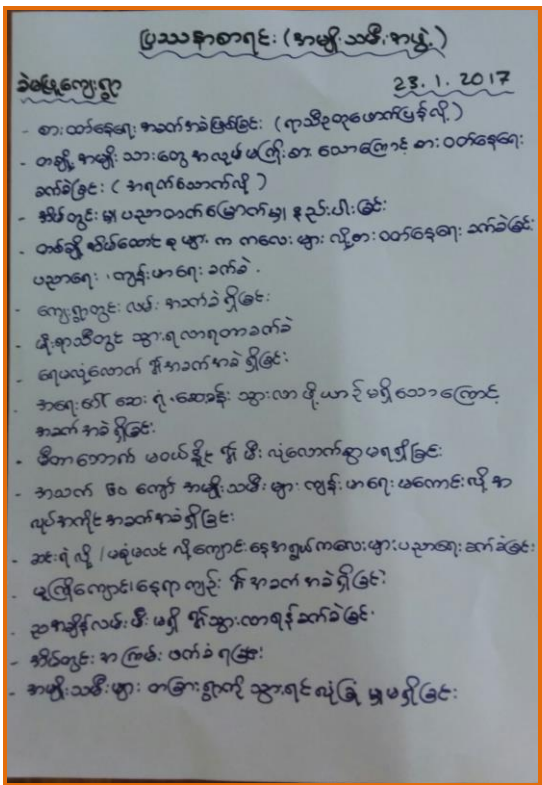 ပြဿနာစာရင်း (အမျိုးသမီးအဖွဲ့)
ခဲမဖြူကျေးရွာ 23.1.2017
- စားဝတ်နေရေး အခက်အခဲဖြစ်ခြင်း (ရာသီဥတုဖောက်ပြန်လို့)
- တချို့အမျိုးသားတွေ အလုပ်မကြိုးစားသောကြောင့် စားဝတ်နေရေး
ခက်ခဲခြင်း (အရက်သောက်လို့)
- အိမ်တွင်းမှု ပညာတတ်မြောက်မှု နည်းပါးခြင်း
- တစ်ချို့အိမ်ထောင်စုများက ကလေးများလို့စားဝတ်နေရေးခက်ခဲခြင်း
ပညာရေး၊ ကျန်းမာရေးခက်ခဲ
- ကျေးရွာတွင်း လမ်းအခက်ခဲရှိခြင်း
- မိုးရာသီတွင် သွားရလာရတာခက်ခဲ
- ရေမလုံလောက်၍အခက်အခဲရှိခြင်း
- အရေးပေါ် ဆေးရုံ၊ ဆေးခန်းသွားလာဖို့ယာဉ်မရှိသောကြောင့်
အခက်အခဲရှိခြင်း
- မီတာဘောက် မဝယ်နိုင်၍ မီးလုံလောက်စွာမရရှိခြင်း
- အသက် ၆၀ ကျော် အမျိုးသမီးများ ကျန်းမာရေးမကောင်းလို့အ
လုပ်အကိုင်အခက်အခဲရှိခြင်း
- ဆင်းရဲလို့/မစုံမလင်လို့ကျောင်းနေအရွယ်ကလေးများပညာရေးခက်ခဲခြင်း
- မူကြိုကျောင်းနေရာကျဉ်း၍အခက်အခဲရှိခြင်း
- ညအချိန်လမ်းမီးမရှိ၍သွားလာရန်ခက်ခဲခြင်း
- အိမ်တွင်းအကြမ်းဖက်ခံရခြင်း
- အမျိုးသမီးများ တခြားရွာကိုသွားရင်လုံခြုံမှုမရှိခြင်း